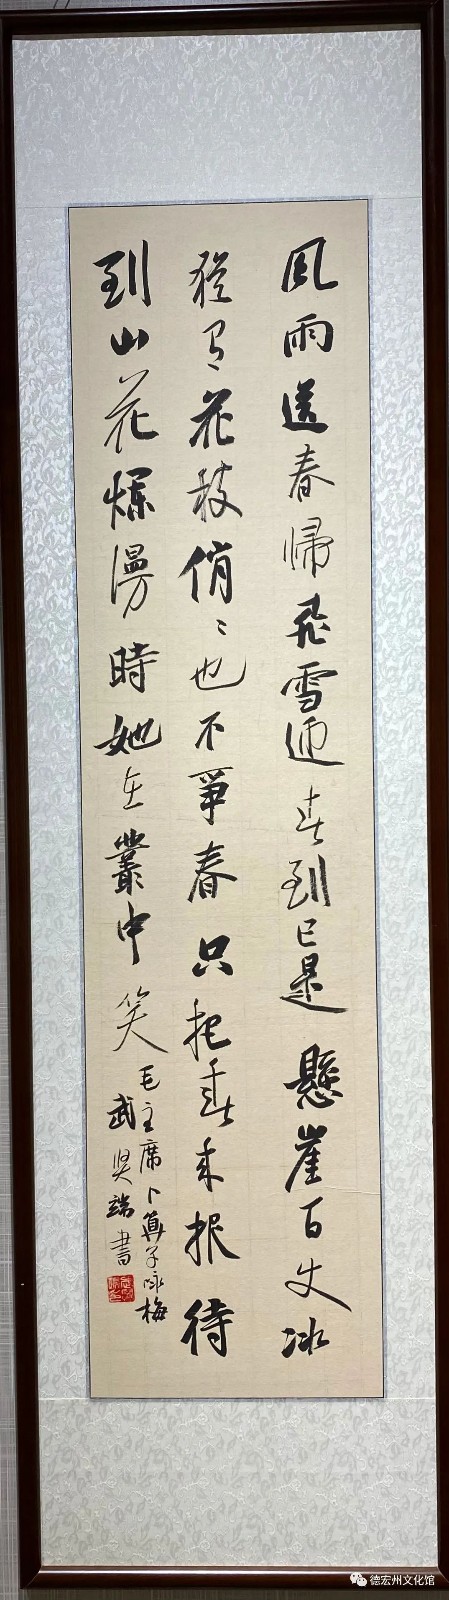 風雨送春歸飛雪迎春到已是懸崖百丈冰
猶有花枝俏〻也不爭春只把春來報待
到山花爛漫時她在叢中笑
毛主席卜算子咏梅
武 端書
德宏州文化馆